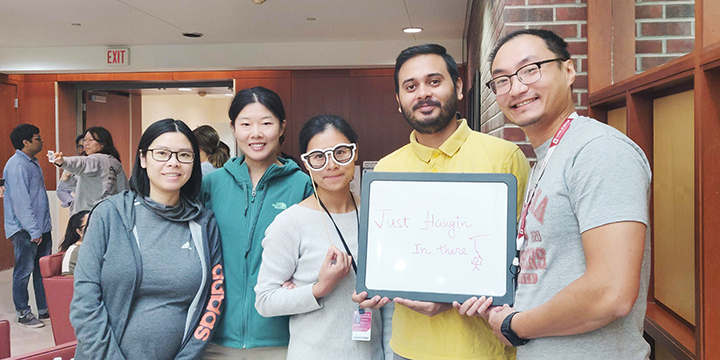 EXIT
Just Hangin
In there
adidas